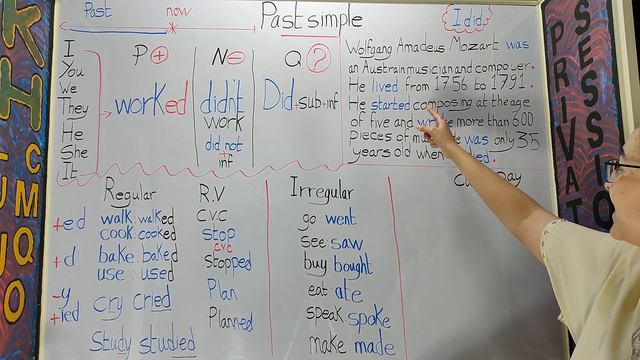 Past now
Past simple
I did.
I
You
We
They
He
She
It
P +
worked
N -
didn't
work
did not
inf
Q ?
Did + sub + inf
Wolfgang Amadeus Mozart was
an Austrain musician and
He lived from 1756 to 1791.
He started composing at the age
of five and more than 600
pieces of was only 35
years old when
Regular
+ed
walk: walked
cook: cooked
+d
bake: baked
use: used
-y
+ied
cry cried
Study studied
R.V
CVC
stop
cvc
stopped
Plan
Planned
Irregular
go went
see saw
buy bought
eat ate
speak spoke
make made
PRIVAT
SESSIO